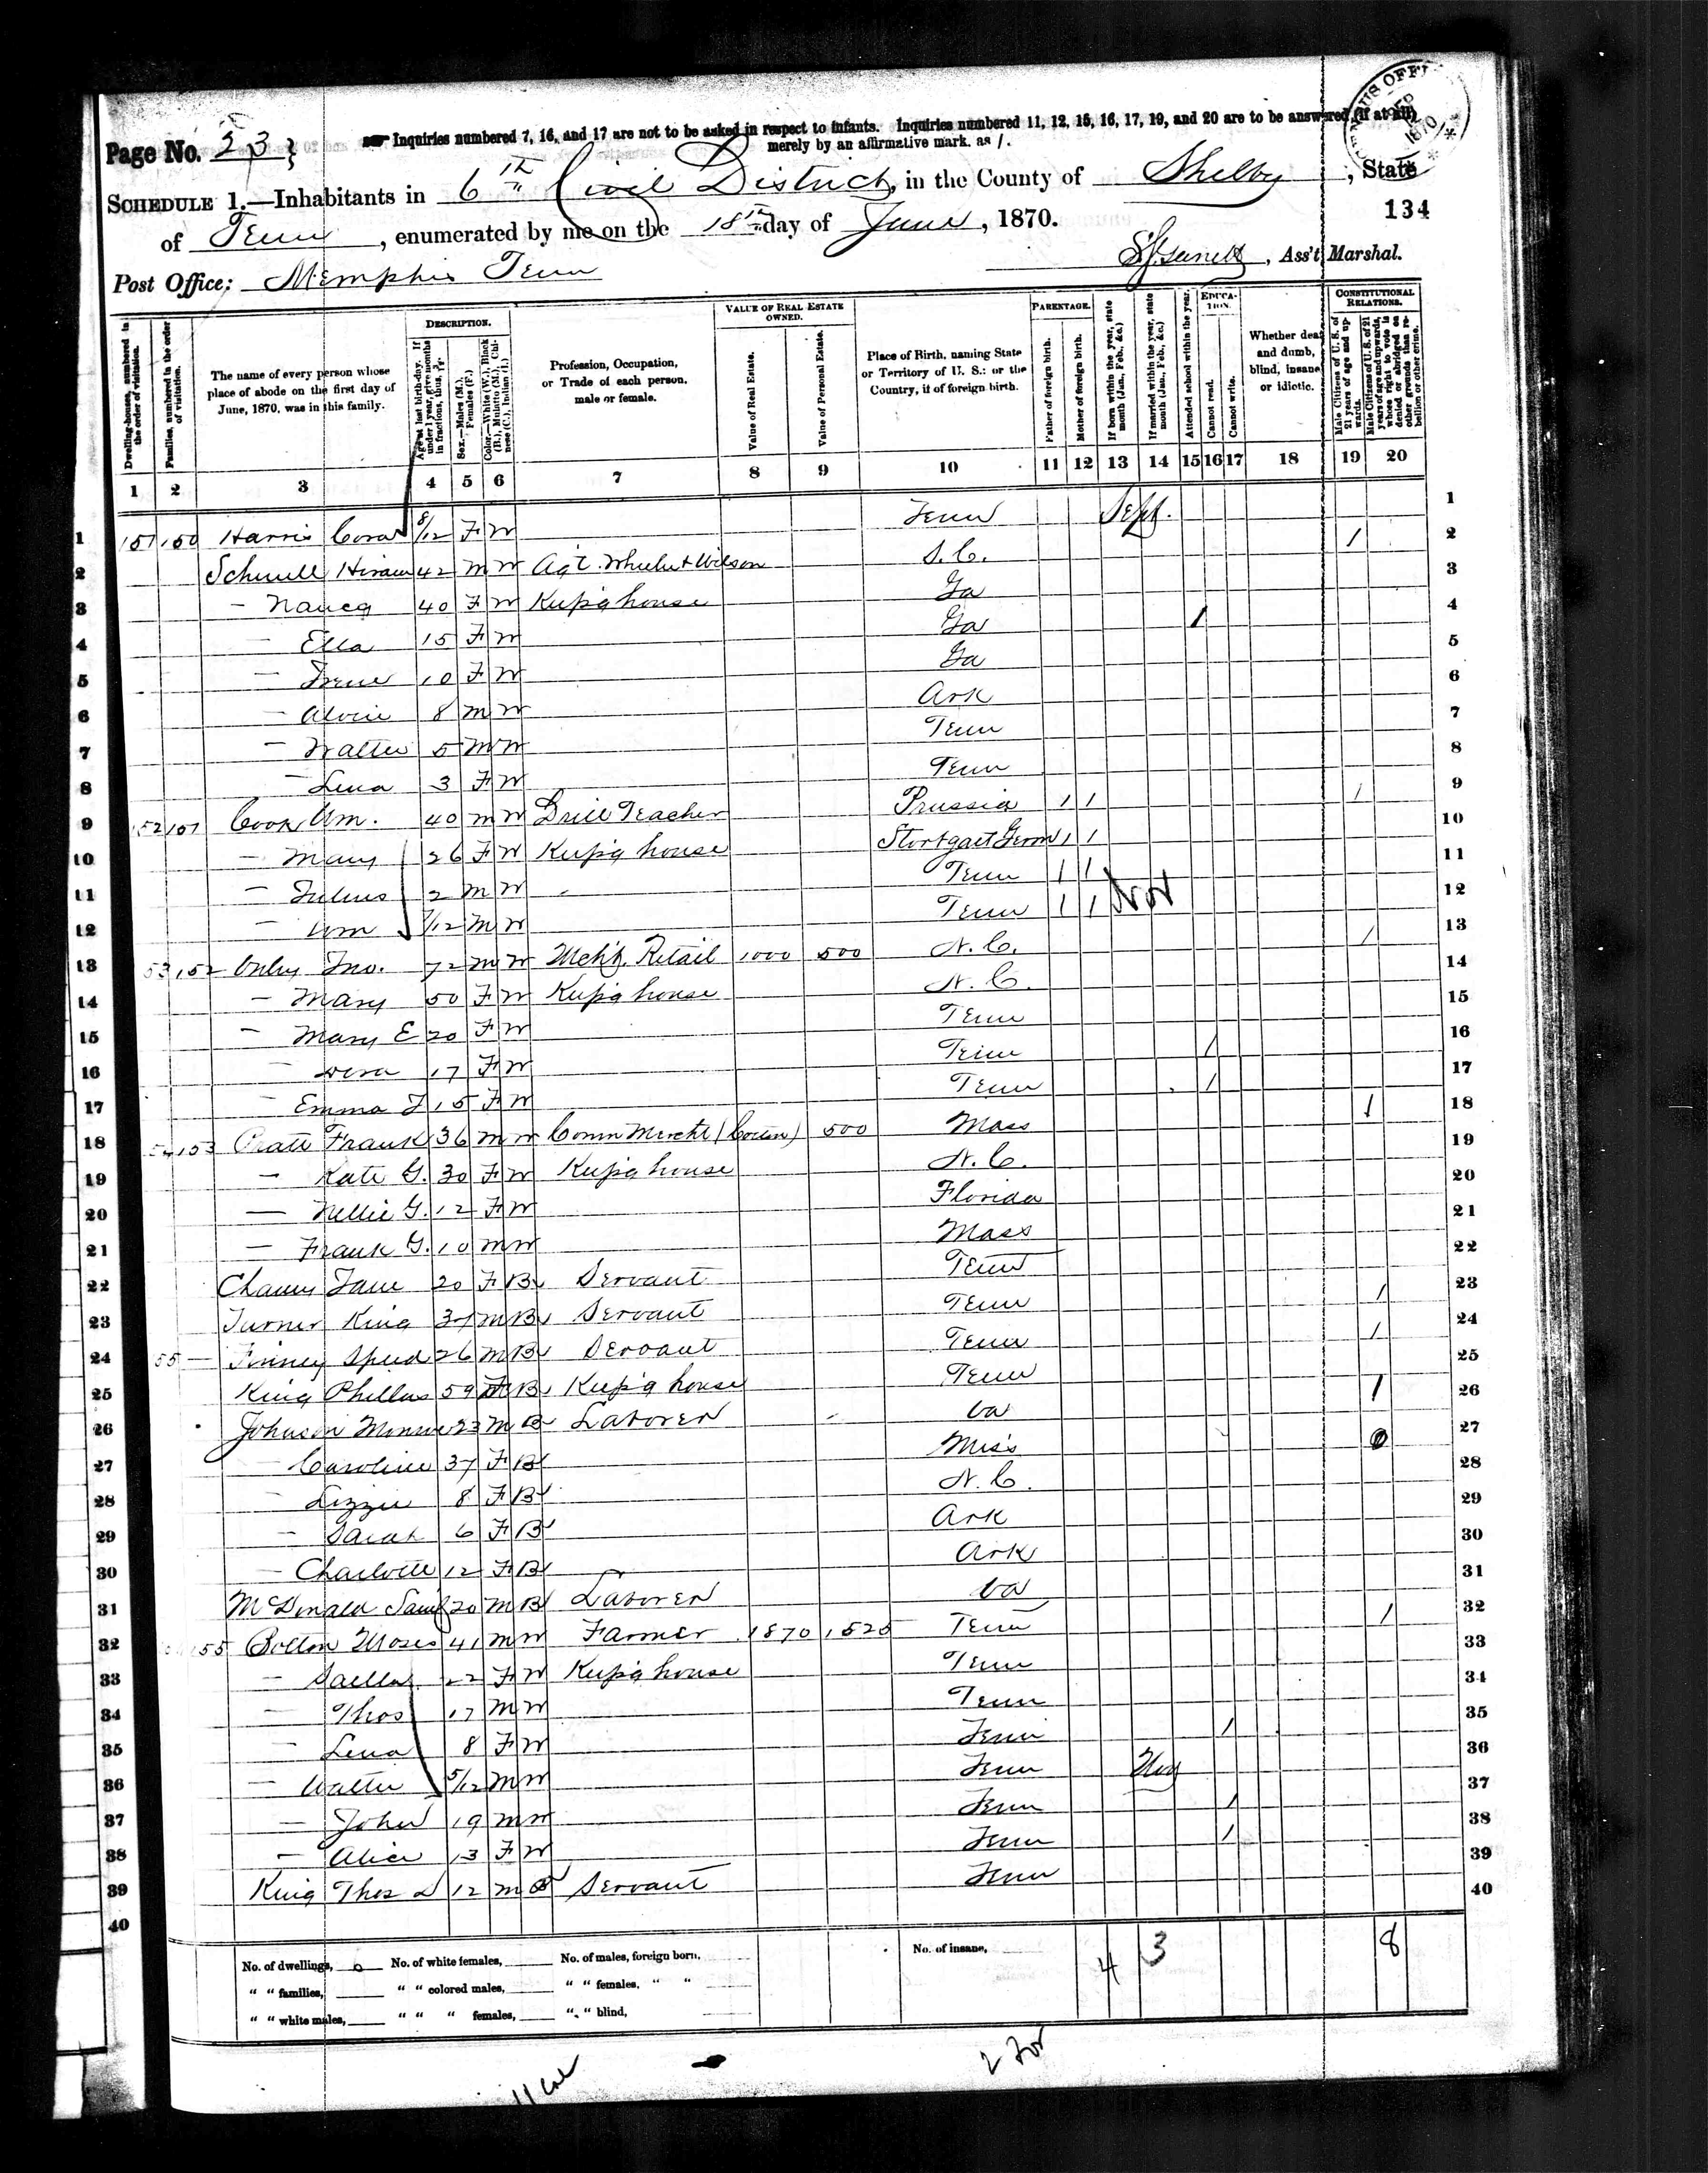 Page No. 23
Inquiries numbered 7, 16, and 17 are not to be asked in respect to infants. Inquiries numbered 11, 12, 15, 16, 17, 19, and 20 are to be answered (if at all)
merely by an affirmative mark, as /.
CENSUS OFFI 1870
SCHEDULE 1.—Inhabitants in 6th Civil District, in the County of Shelby, State
of Tenn, enumerated by me on the 18th day of June, 1870.
134
Post Office: Memphis Tenn
Ass't Marshal.
DESCRIPTION.
VALUE OF REAL ESTATE OWNED.
PARENTAGE.
EDUCATION.
CONSTITUTIONAL RELATIONS.
Dwelling-houses, numbered in the order of visitation.
Families, numbered in the order of visitation.
The name of every person whose place of abode on the first day of June, 1870, was in this family.
Age at last birth-day. If under 1 year, give months in fractions, thus, 3/12
Sex.—Males (M.), Females (F.)
Color.—White (W.), Black (B.), Mulatto (M.), Chinese (C.), Indian (I.)
Profession, Occupation, or Trade of each person, male or female.
Value of Real Estate.
Value of Personal Estate.
Place of Birth, naming State or Territory of U. S.; or the Country, if of foreign birth.
Father of foreign birth.
Mother of foreign birth.
If born within the year, state month (Jan., Feb., &c.)
If married within the year, state month (Jan., Feb., &c.)
Attended school within the year.
Cannot read.
Cannot write.
Whether deaf and dumb, blind, insane or idiotic.
Male Citizens of U. S. of 21 years of age and upwards.
Male Citizens of U. S. of 21 years of age and upwards, whose right to vote is denied or abridged on other grounds than rebellion or other crime.
1 2 3 4 5 6 7 8 9 10 11 12 13 14 15 16 17 18 19 20
1 151 150 Harris Cora 8/12 F W Tenn Sept. 1
2 Hiram 42 M W Agt. Wheeler & Wilson S.C. / 2
3 — Nancy 40 F W Keep'g house Ga 3
4 — Ella 15 F W Ga / 4
5 — Irene 10 F W Ga 5
6 — 8 M W Ark 6
7 — Walter 5 M W Tenn 7
8 — Lena 3 F W Tenn 8
9 152 151 Cook Wm. 40 M W Drill Teacher Prussia / / / 9
10 — Mary 26 F W Keep'g house Stortgart Germ / / 10
11 — Julius 2 M W Tenn / / 11
12 — Wm M W Tenn / / 12
13 53 152 Jno. 72 M W Retail 1000 500 N.C. / 13
14 — Mary 50 F W Keep'g house N.C. 14
15 — Mary E 20 F W Tenn 15
16 — 17 F W Tenn / 16
17 — Emma J 15 F W Tenn / 17
18 54 153 Pratt Frank 36 M W Comm Mercht (Cotton) 500 Mass / 18
19 — Kate G. 30 F W Keep'g house N.C. 19
20 — Nellie G. 12 F W Florida 20
21 — Frank G. 10 M W Mass 21
22 Jane 20 F B Servant Tenn 22
23 Turner King 37 M B Servant Tenn / 23
24 55 — Speed 26 M B Servant Tenn / 24
25 King Phillas 59 F B Keep'g house Tenn 25
26 Johnson Monroe 23 M B Laborer Va / 26
27 — Caroline 37 F B Miss 27
28 — Lizzie 8 F B N.C. 28
29 — Sarah 6 F B Ark 29
30 — Charlotte 12 F B Ark 30
31 McDonald 20 M B Laborer Va 31
32 155 Bolton Moses 41 M W Farmer 1870 1525 Tenn / 32
33 — 22 F W Keep'g house Tenn 33
34 — Thos 17 M W Tenn 34
35 — Lena 8 F W Tenn / 35
36 — Walter 5/12 M W Tenn 36
37 — John 19 M W Tenn / 37
38 — Alice 13 F W Tenn / 38
39 King Thos 12 M B Servant Tenn 39
40 40
No. of dwellings, No. of white females, No. of males, foreign born, No. of insane, 4 3 8
" " families, " " colored males, " " females, " "
" " white males, " " " females, " " blind,
2 For
11 Col